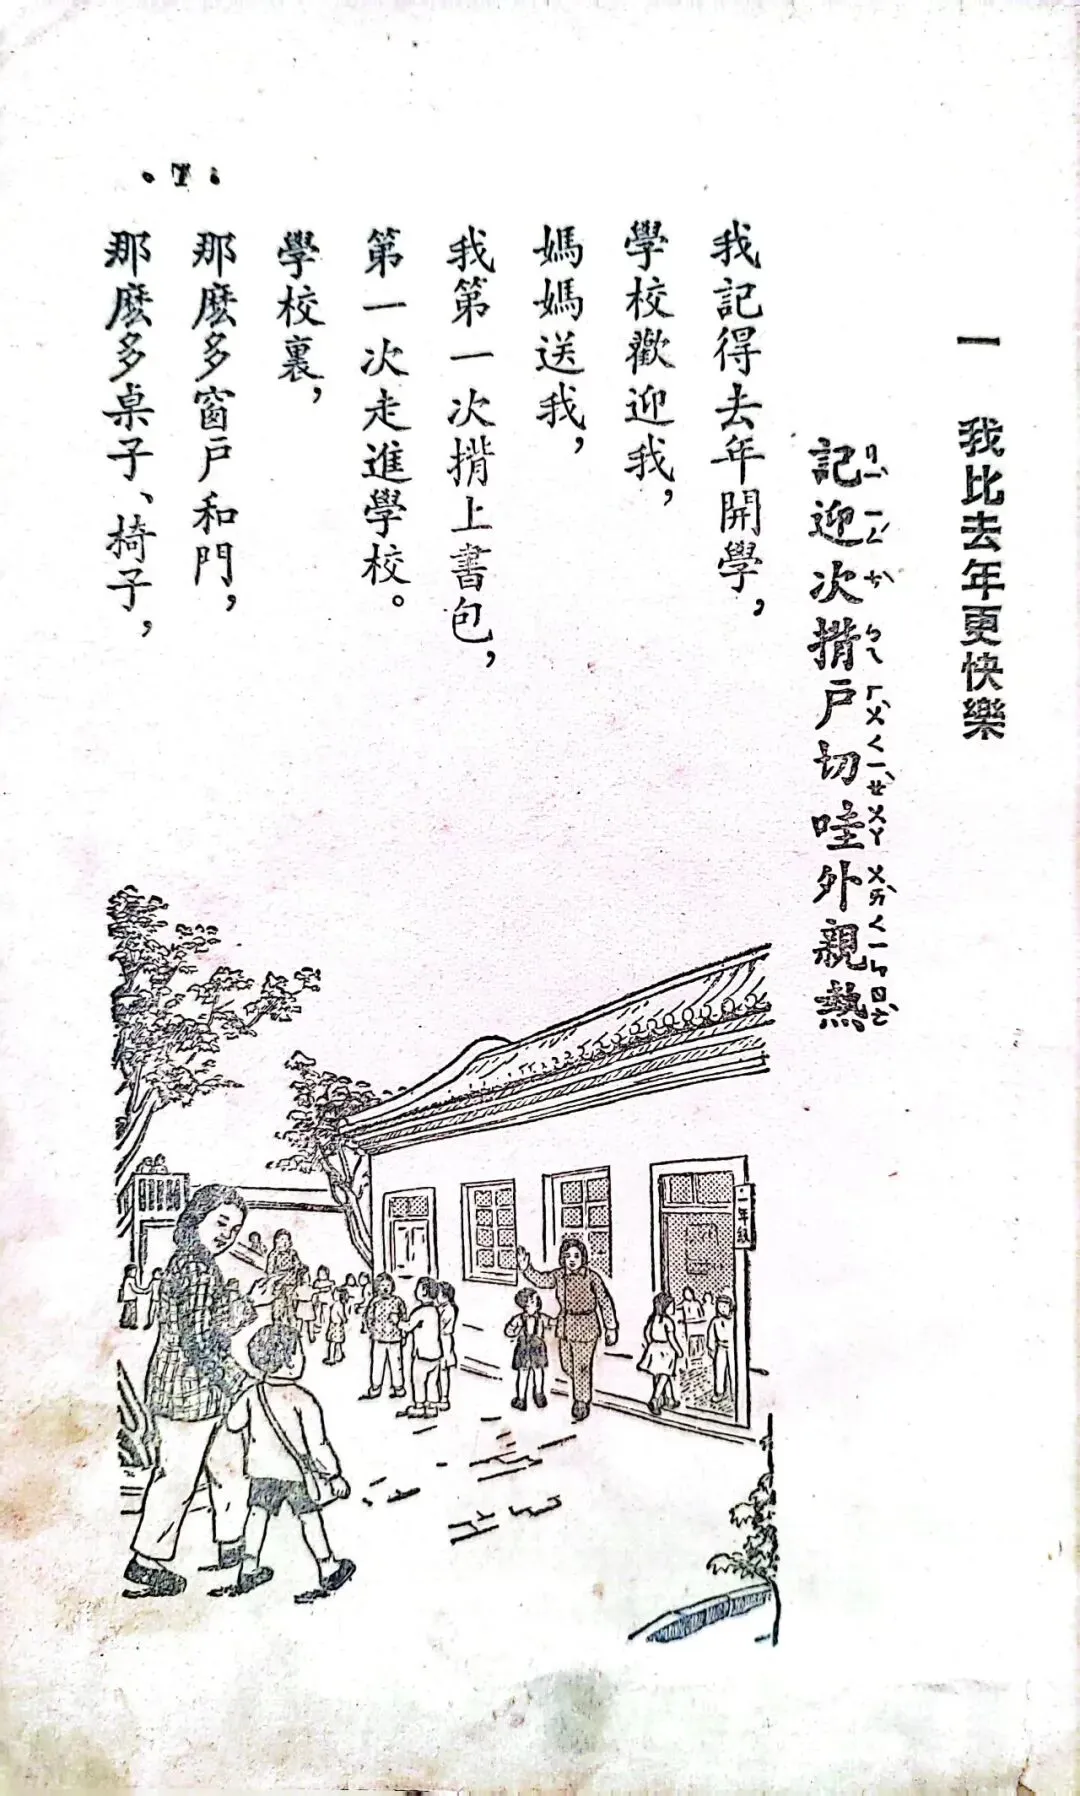 一 我比去年更快樂
記迎次揹戶切哇外親熱
ㄐㄧˋ ㄧㄥˊ ㄘˋ ㄅㄟ ㄏㄨˋ ㄑㄧㄝˋ ㄨㄚ ㄨㄞˋ ㄑㄧㄣ ㄖㄜˋ
我記得去年開學，
學校歡迎我，
媽媽送我，
我第一次揹上書包，
第一次走進學校。
學校裏，
那麼多窗戶和門，
那麼多桌子、椅子，
一年級
·1·